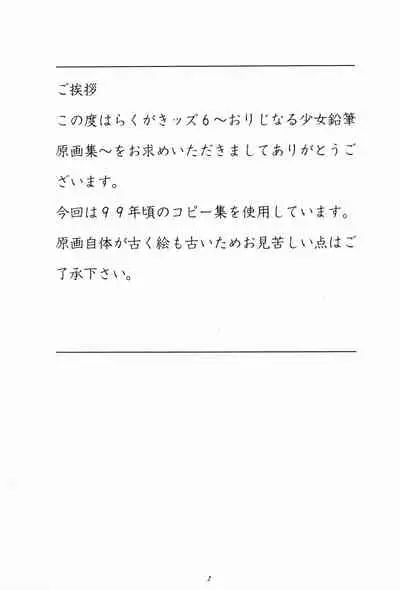 ご挨拶
この度はらくがきッズ６～おりじなる少女鉛筆
原画集～をお求めいただきましてありがとうご
ざいます。
今回は９９年頃のコピー集を使用しています。
原画自体が古く絵も古いためお見苦しい点はご
了承下さい。